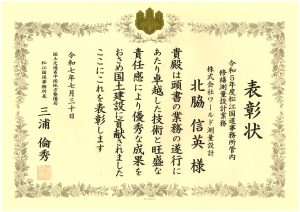 表彰状
令和5年度松江国道事務所管内
修繕測量設計業務
株式会社ワールド測量設計
北脇 信英 様
貴殿は頭書の業務の遂行に
あたり卓越した技術と旺盛な
責任感により優秀な成果を
おさめ国土建設に貢献されました
ここにこれを表彰します
令和七年七月三十日
国土交通省中国地方整備局
松江国道事務所長
三浦 倫秀